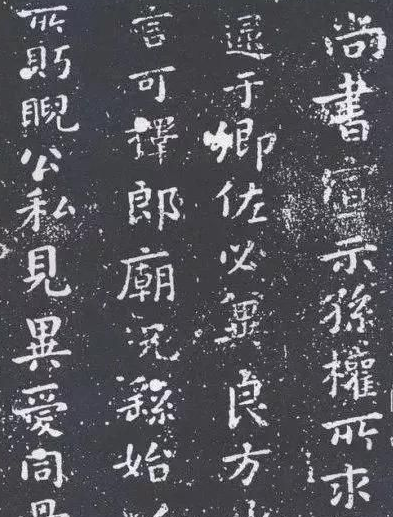 尚書宣示孫權所求
逮于卿佐必冀良方
言可擇郎廟況繇始
所眄睨公私見異愛同骨